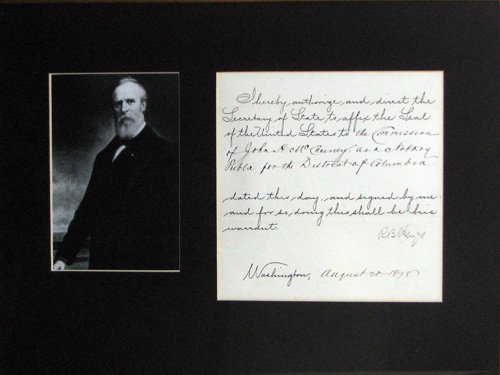 I hereby authorize and direct the
Secretary of State to affix the Seal
of the United States to the Commission
of John H. McChesney as a Notary
Public for the District of Columbia
dated this day, and signed by me
and for so doing this shall be his
warrant.
R B Hayes
Washington, August 20 1878